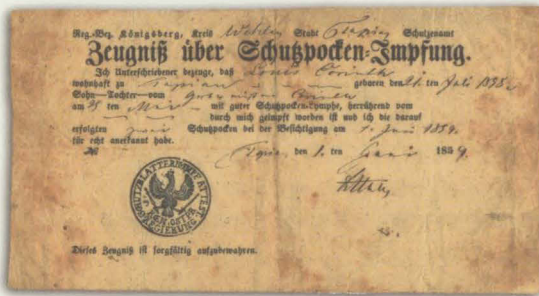 Reg.-Bez. Königsberg, Kreis Wehlau Stadt Tapiau Schulzenamt
Zeugniß über Schutzpocken-Impfung.
Ich Unterschriebener bezeuge, daß Louis Corinth
wohnhaft zu Tapiau geboren den 21. ten July 1858
Sohn—Tochter—vom Corinth
am 25 ten Mai mit guter Schutzpocken-Lymphe, herrührend vom
durch mich geimpft worden ist und ich die darauf
erfolgten zwei Schutzpocken bei der Besichtigung am 1. Juni 1859.
für echt anerkannt habe.
№ Tapiau, den 1. ten Juni 1859.
Dieses Zeugniß ist sorgfältig aufzubewahren.